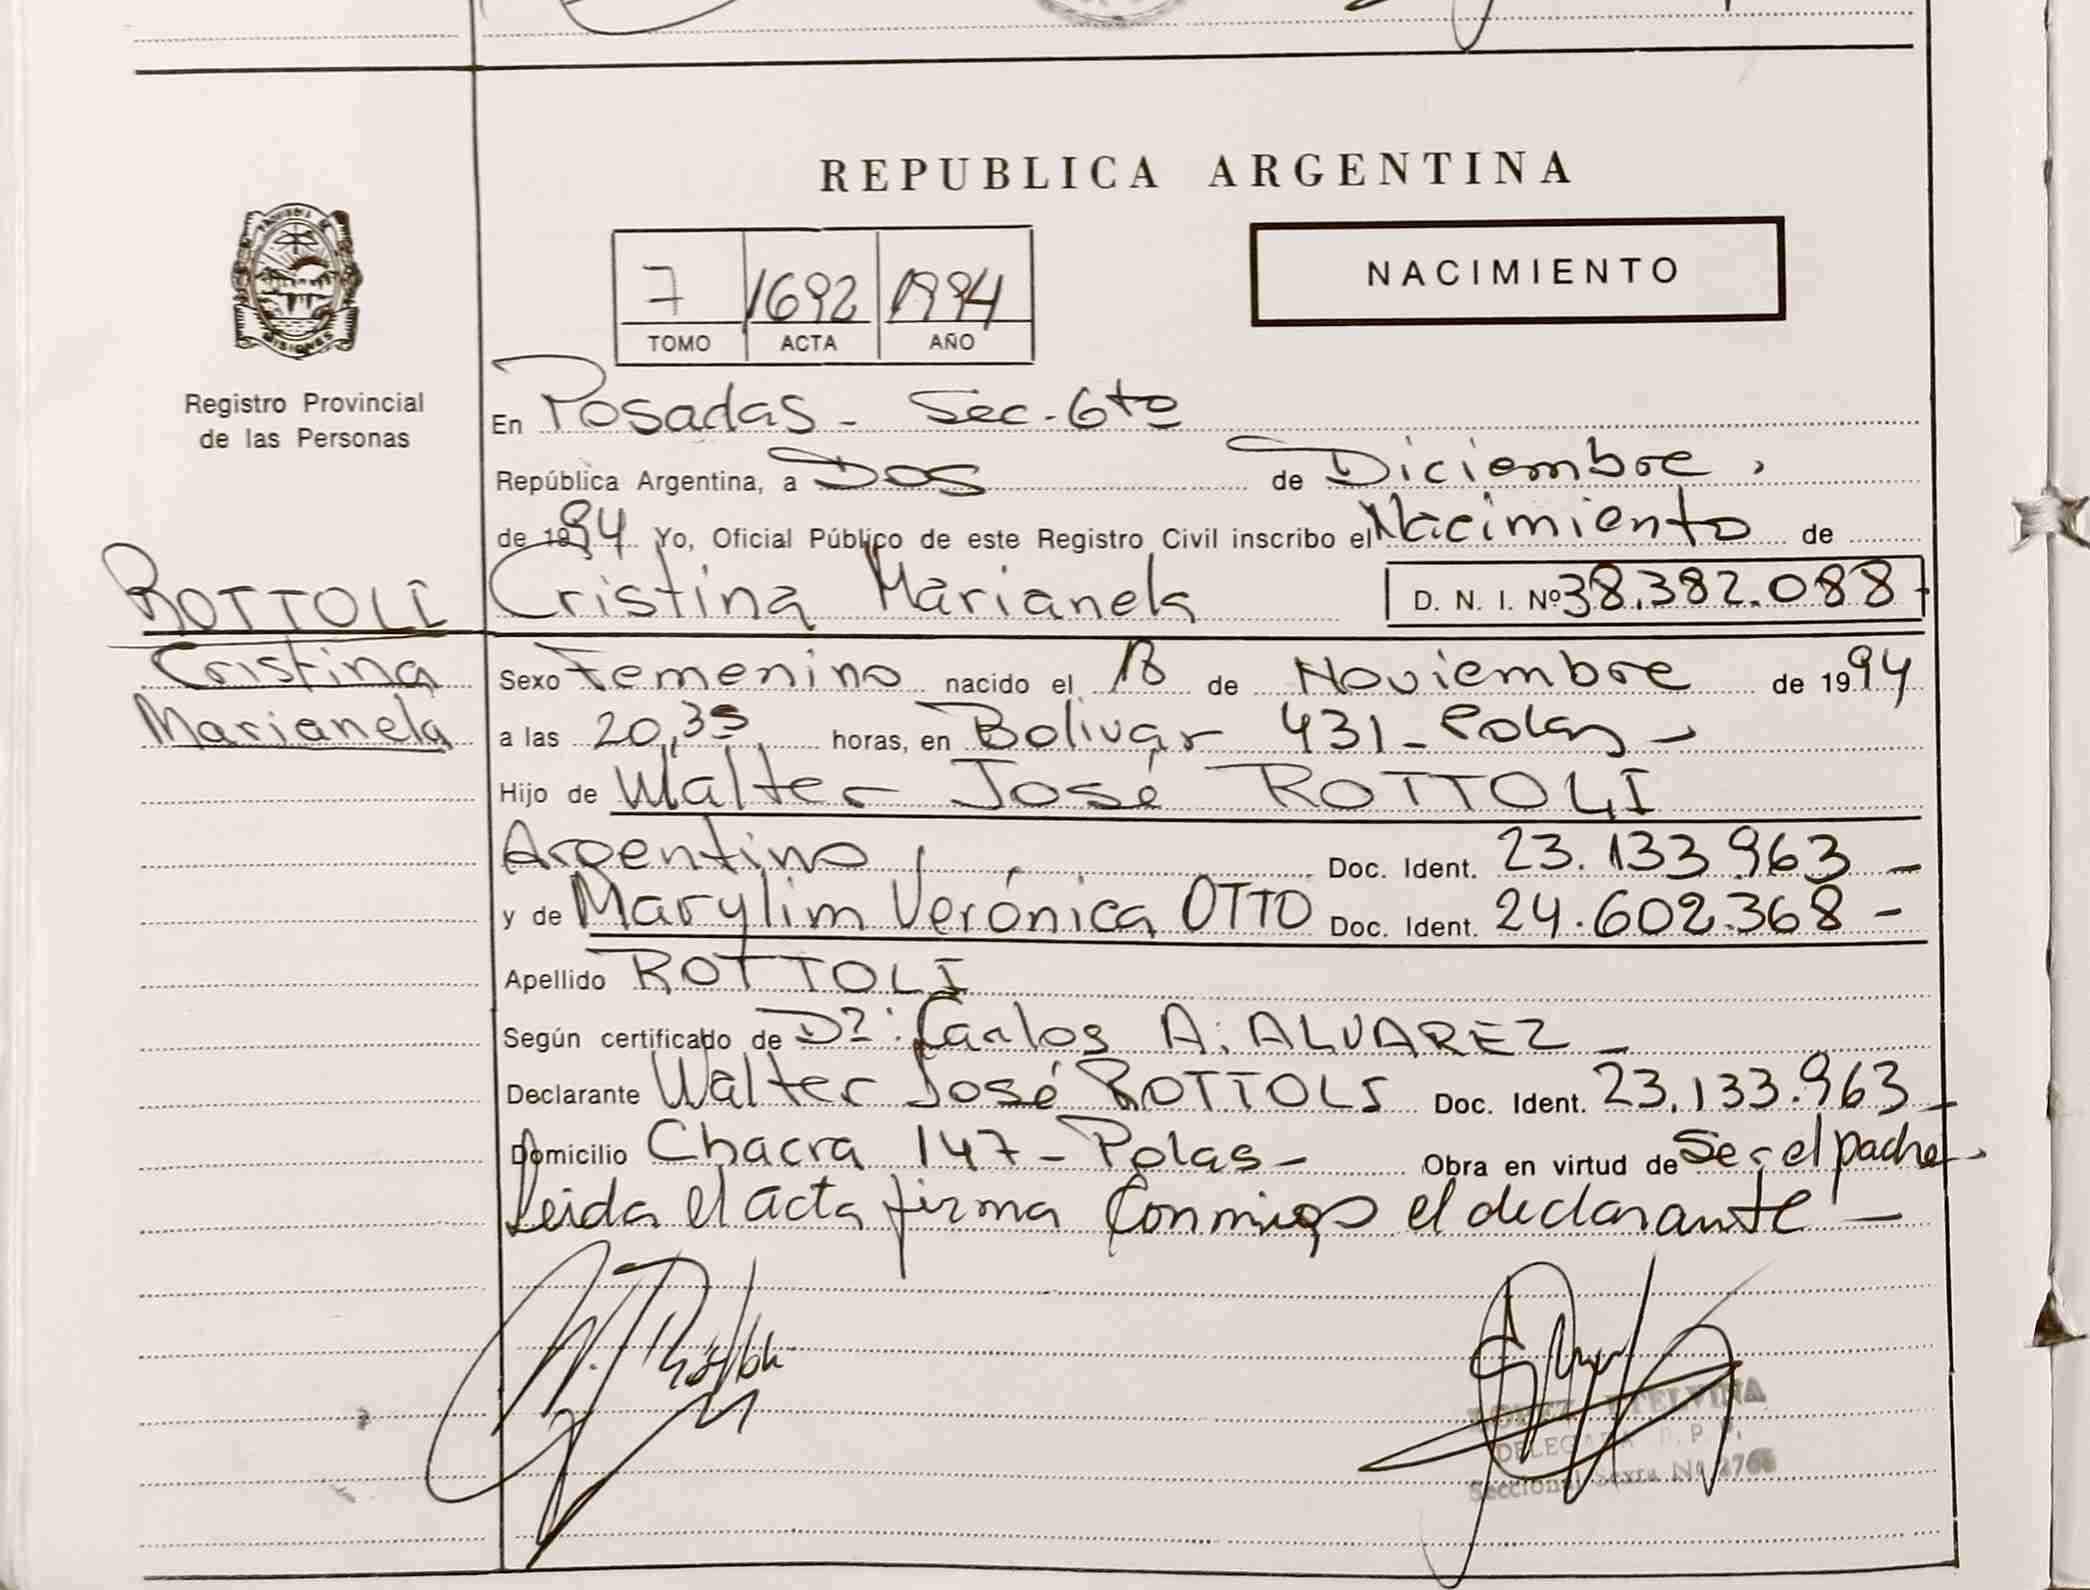 REPUBLICA ARGENTINA
NACIMIENTO
7 1692 1994
TOMO ACTA AÑO
Registro Provincial
de las Personas
En Posadas - Sec. 6to
República Argentina, a Dos de Diciembre,
de 1994 Yo, Oficial Público de este Registro Civil inscribo el Nacimiento de
ROTTOLI
Cristina
Marianela
Cristina Marianela D. N. I. Nº 38.382.088-
Sexo Femenino nacido el 18 de Noviembre de 1994
a las 20,35 horas, en Bolivar 431 -
Hijo de Walter José ROTTOLI
Argentino, Doc. Ident. 23.133.963 -
y de Marylim Verónica OTTO Doc. Ident. 24.602.368 -
Apellido ROTTOLI
Según certificado de Dr: Carlos A. ALVAREZ -
Declarante Walter José ROTTOLI Doc. Ident. 23.133.963 -
Domicilio Chacra 147 - Pdas - Obra en virtud de Ser el padre.
Leida el acta firma conmigo el declarante -
LOPEZ ETELVINA
DELEGADA R. P. P.
Seccional Sexta Nº 2766